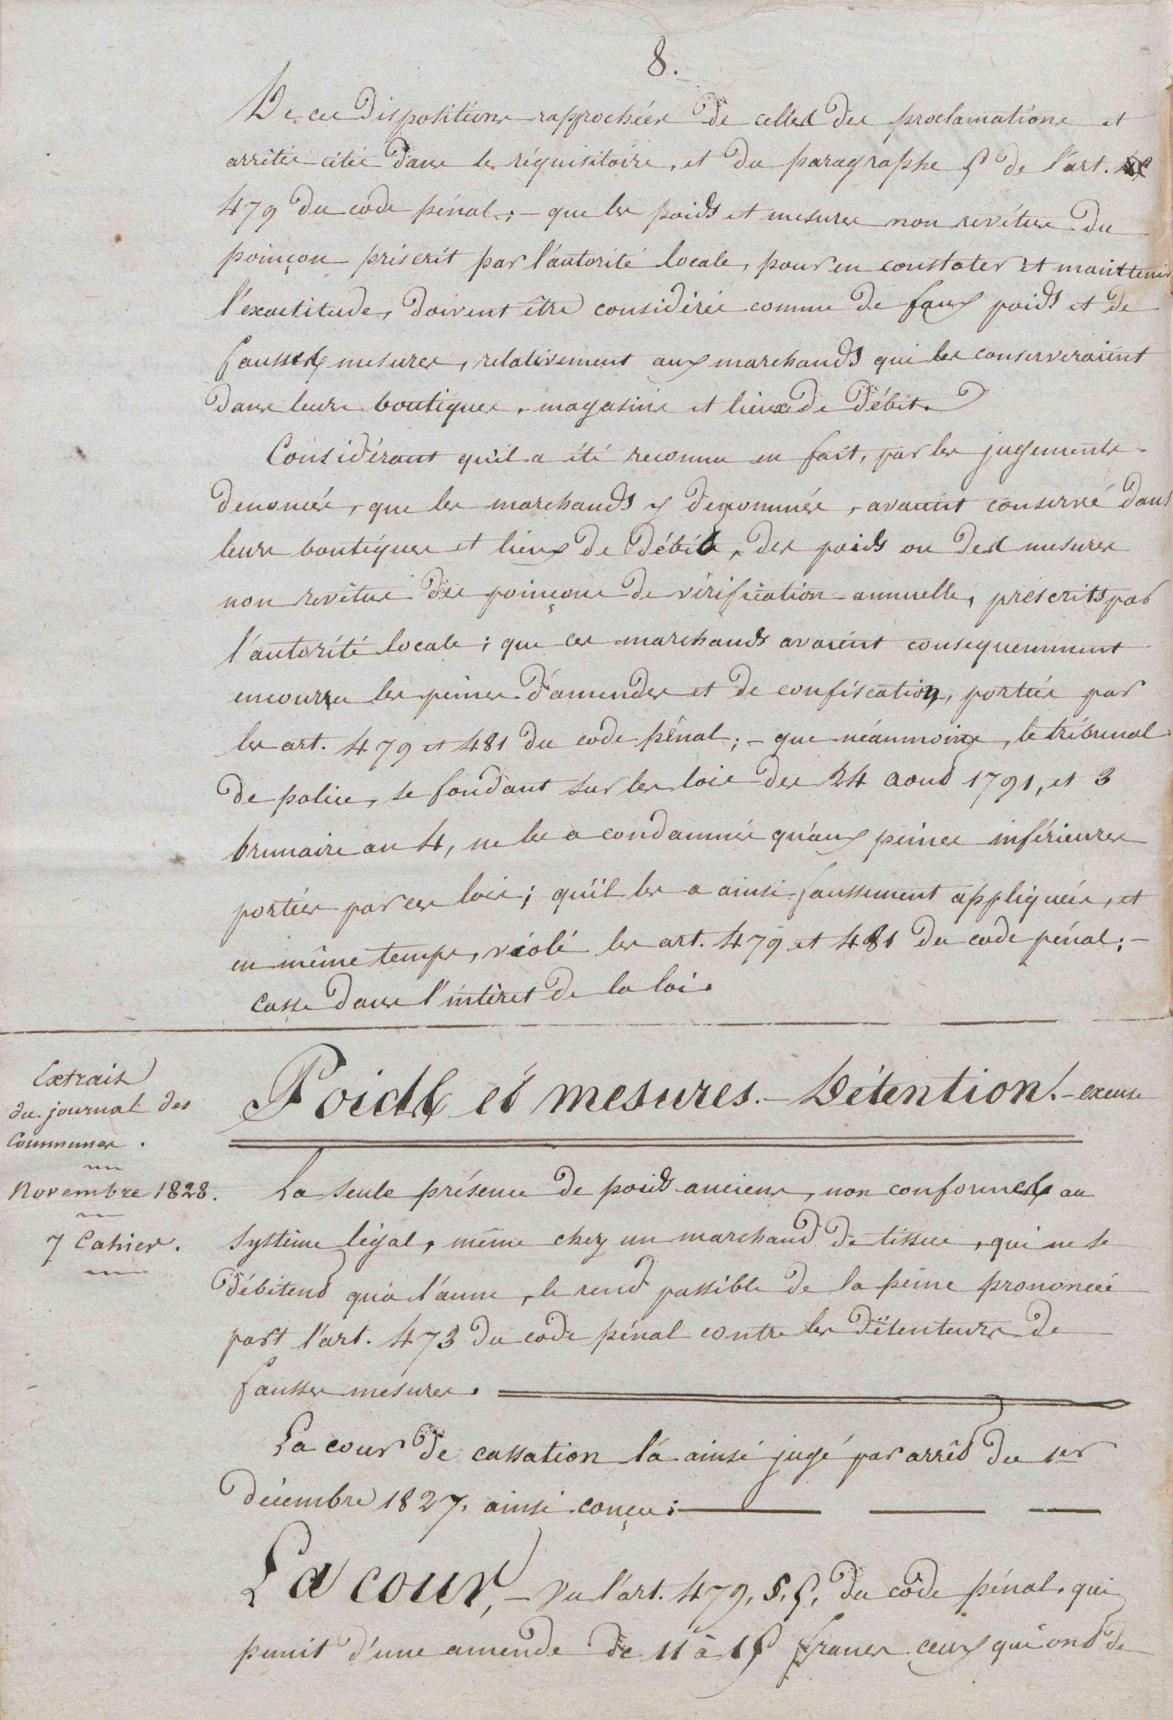 8.
De ces dispositions rapprochées de celles des proclamations et
arrêtés cités dans le réquisitoire, et du paragraphe 5 de l'art.
479 du code pénal; - que les poids et mesures non revêtus du
poinçon préscrit par l'autorité locale, pour en constater et maintenir
l'exactitude, doivent être considérés comme de faux poids et de
fausses mesures, relativement aux marchands qui les conserveraient
dans leurs boutiques, magasins et lieux de débit.
Considérant qu'il a été reconnu en fait, par les jugements
denoncés, que les marchands y dénommés, avaient conservé dans
leurs boutiques et lieux de débit, des poids ou des mesures
non revêtus des poinçons de vérification annuelle, prescrits par
l'autorité locale; que ces marchands avaient consequemment
encouru les peines d'amendes et de confiscation, portées par
les art. 479 et 481 du code pénal; - que néanmoins, le tribunal
de police, se fondant sur les lois des 24 aout 1791, et 3
brumaire an 4, ne les a condamnés qu'aux peines inférieures
portées par ces lois; qu'il les a ainsi faussement appliquées, et
en même temps, violé les art. 479 et 481 du code pénal; -
casse dans l'intéret de la loi.
Extrait
du journal des
Communes.
Novembre 1828.
7 Cahier.
Poids et mesures. - Détention. - excuse
La seule présence de poids anciens, non conformes au
système légal, même chez un marchand de tissus, qui ne se
débitent qu'à l'aune, le rend passible de la peine prononcée
part l'art. 473 du code pénal contre les détenteurs de
fausses mesures.
La cour de cassation l'a ainsi jugé par arrêt du 1er
décembre 1827, ainsi conçu:
La cour, - Vu l'art. 479, §. 5, du code pénal, qui
punit d'une amende de 11 à 15 francs ceux qui ont de